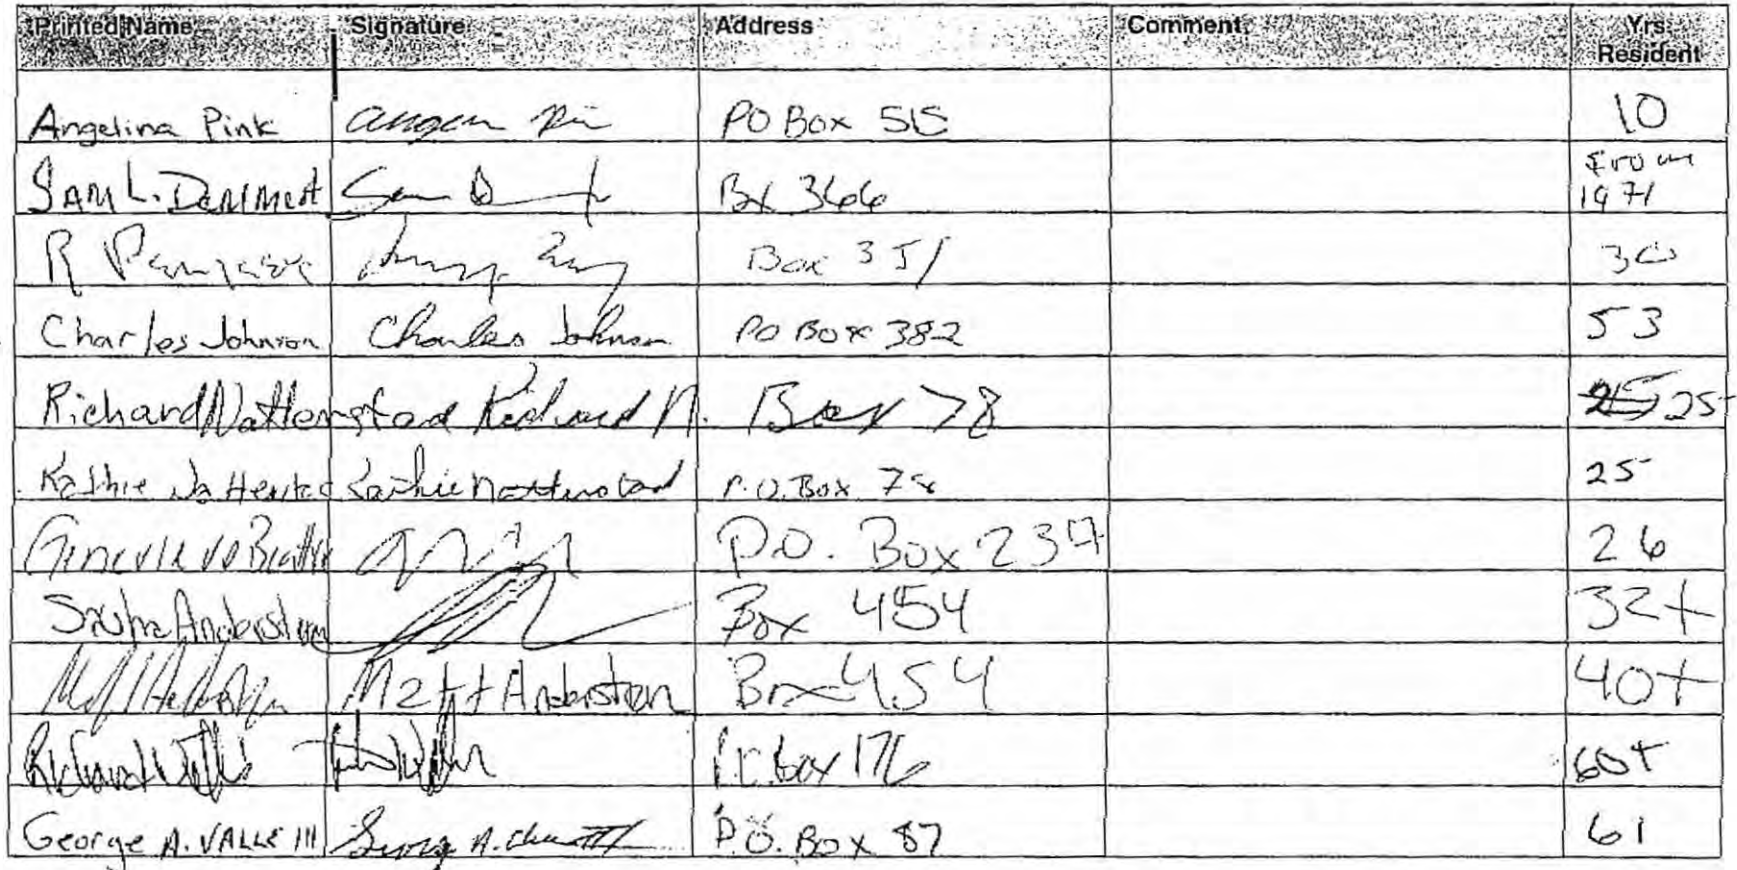 Printed Name Signature Address Comment Yrs. Resident
Angelina Pink PO Box 515 10
SAM L. Demmert Bx 366 From 1971
R Box 351 30
Charles Johnson Charles Johnson PO BOX 382 53
Richard Nattenstad Richard N. Box 78 25 25
Kathie Nattenstad Kathie Nattenstad P.O. Box 78 25
Genevieve P.O. Box 237 26
Anderstrom Box 454 32+
Matt Anderstrom Box 454 40+
Richard Box 176 60+
George A. VALLE III George A. P.O. Box 87 61